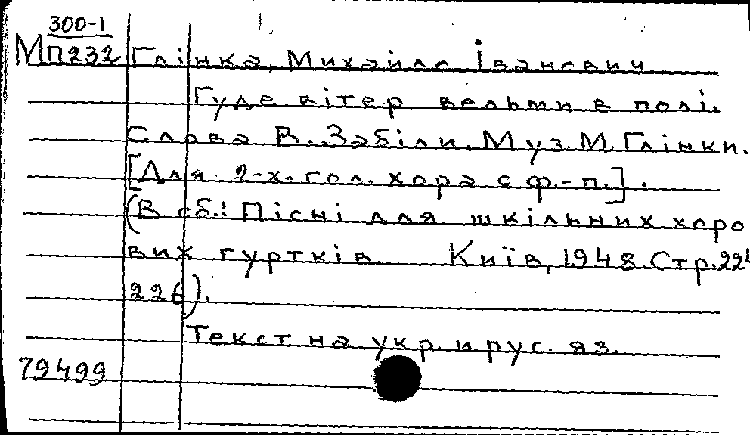 300-1
Мп232 Глінка, Михайло Іванович
Гуде вітер вельми в полі.
Слова В. Забіли. Муз. М. Глінки.
[Для 2-х. гол. хора с ф.-п.].
(В сб.: Пісні для шкільних хоро
вих гуртків Київ, 1948 Стр.
226).
Текст на укр. и рус. яз.
79499